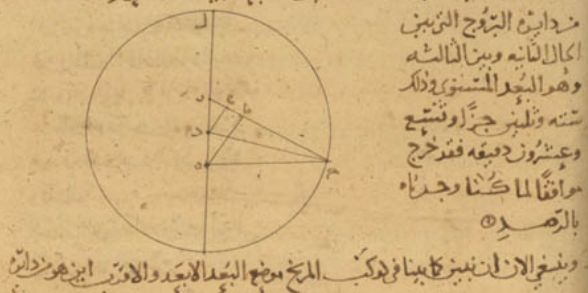 من دايرة البروج التي بين
الحال الثانيه وبين الثالثه
وهو البعد المستوى وذلك
ستة وثلثين جزءًا وتسع
وعشرون دقيقه فقد خرج
موافقًا لما كنا وجدناه
بالرصد
وينبغي الان ان نبين كما بينا في كوكب المريخ موضع البعد الابعد والاقرب اين هو من دايرة